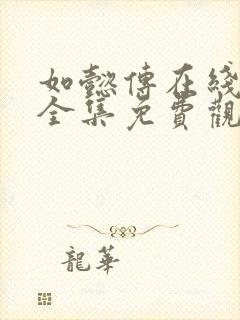 如懿傳在綫
全集免費觀
龍華